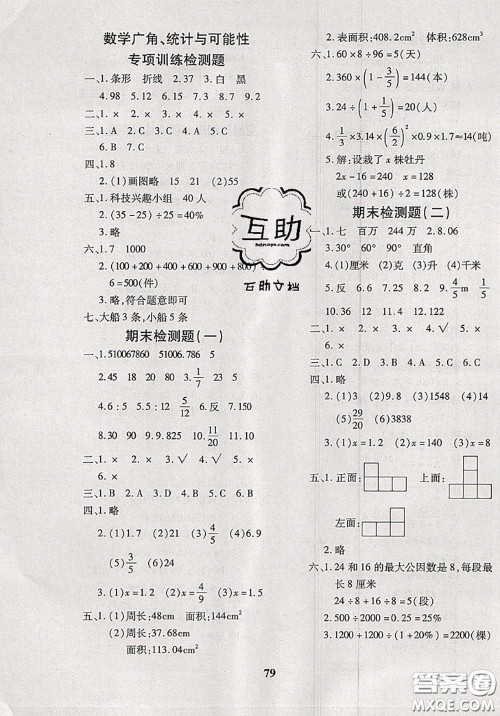 数学广角、统计与可能性
专项训练检测题
一、1.条形 折线 2.37 3.白 黑
4.98 5.12 6.5
二、1.× 2.× 3.× 4.×
三、1.A 2.C 3.C 4.A 5.C 6.C
四、1.8
2.(1)画图略 15 21 (2)55
五、1.科技兴趣小组 40人
2.(35-25)÷25=40%
3.略
六、1.7 1000
2.(100+200+400+600+800+
÷6=500(件)
3.略,符合题意即可
七、大船3条,小船5条
期末检测题(一)
一、1.510067860 51006.786 5
2.45 18 20 80 3.1/7 23 5
4.6:5 5:12 5/12 6.反 7.150
8.9π 9.825 10.11/20 11.9
二、1.× 2.× 3.√ 4.× 5.√
三、1.B 2.A 3.D 4.C 5.B
四、1.略
2.(1)(2)2 (3)6 (4)9/25
3.(1)x=1.2 (2)x=4/9
五、1.(1)周长:48cm 面积:144cm²
(2)周长:37.68cm
面积:113.04cm²
2.表面积:408.2cm² 体积:628cm³
六、1.60×8÷96=5(天)
2.360×(1-3/5)=144(
3.24÷(1+1/5)=20(人)
4.1/3×3.14×(6/2)²×0.9×1.7≈14(吨)
5.解:设栽了x株牡丹
2x-16=240 x=128
或(240+16)÷2=128(株)
期末检测题(二)
一、1.七 百万 244万 2.8.06
3.30° 60° 90° 直角
4.(1)升 (2)克 (3)升 (4)千米
12.90
二、1.× 2.× 3.× 4.√ 5.√
三、1.B 2.C 3.B 4.A 5.D
四、1.略
2.(1)3 (2)9.8 (3)1548 (4)14
(5)29/50 (6)3838
3.(1)x=1.2 (2)x=140
五、1.正面: 上面:
左面:
2.略
六、1.24和16的最大公因数是8,每段最
长8厘米
24÷8+16÷8=5(段)
2.500÷2000=0.25=25%
3.1200+1200÷(1-25%)=2200(棵)
互助
互助文档
79
答案圈
MXQE.COM